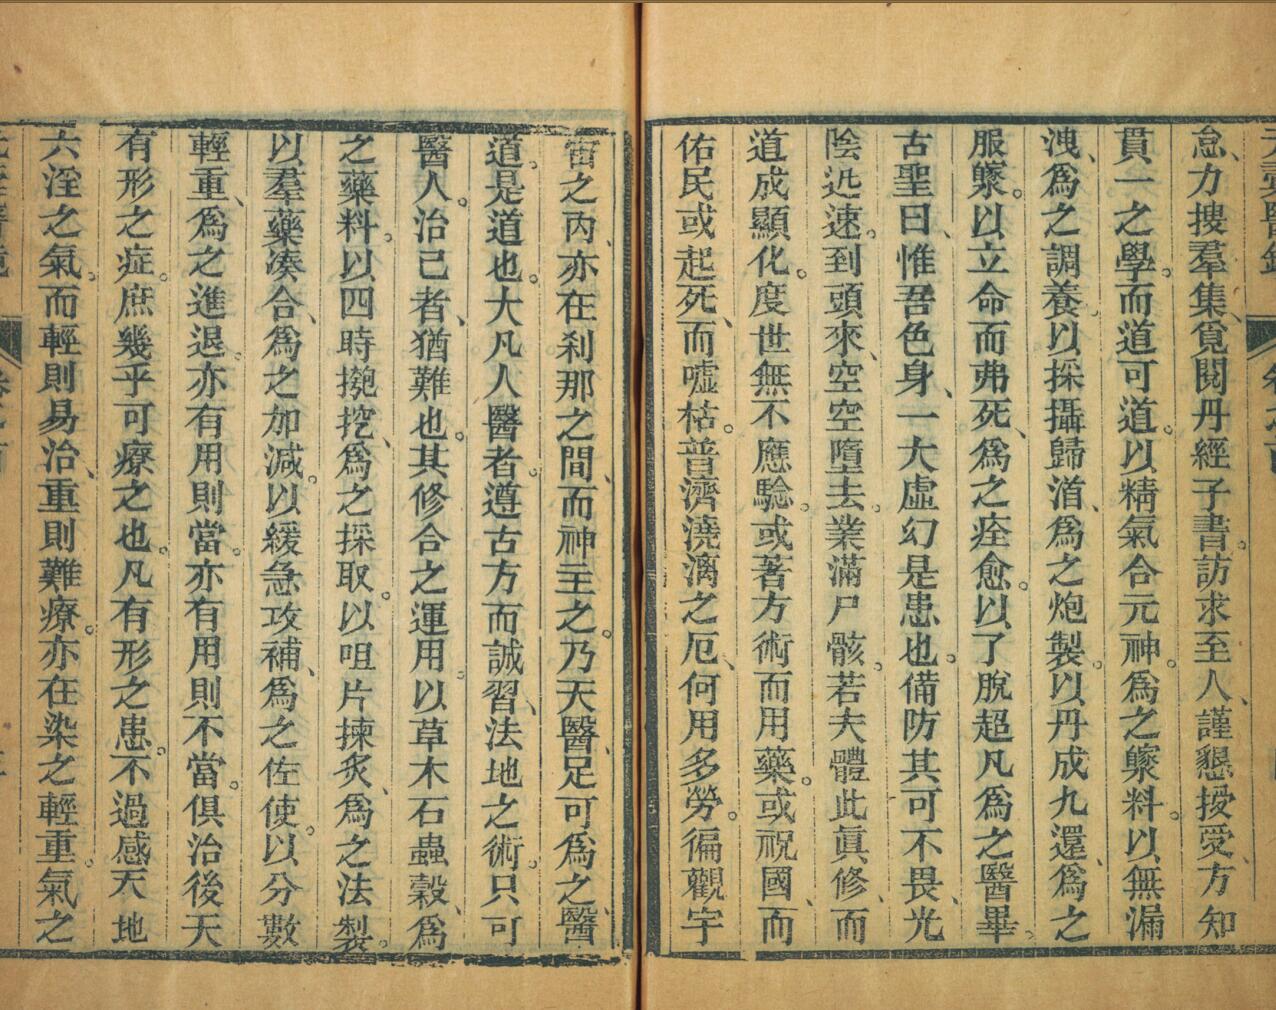 怠、力搜羣集、覓閱丹經子書。訪求至人、謹懇授受、方知
貫一之學。而道可道。以精氣合元神。爲之藥料。以無漏
洩、爲之調養。以採攝歸湻、爲之炮製。以丹成九還、爲之
服藥。以立命而弗死、爲之痊愈。以了脫超凡爲之醫畢。
古聖曰、惟吾色身、一大虛幻是患也。備防其可不畏、光
陰迅速。到頭來、空空墮去。業滿尸骸。若夫體此眞修、而
道成顯化。度世無不應騐。或著方術而用藥。或祝國、而
佑民或起死、而噓枯。普濟澆漓之厄、何用多勞。徧觀宇
宙之內、亦在刹那之間、而神主之。乃天醫、足可爲之、醫
道。是道也。大凡人醫者。遵古方而誠習、法地之術。只可
醫人。治己者、猶難也。其修合之運用。以草木石蟲穀、爲
之藥料。以四時挖、爲之採取。以咀片揀炙、爲之法製。
以羣藥凑合、爲之加減。以緩急攻補、爲之佐使。以分數
輕重、爲之進退。亦有用則當。亦有用則不當。俱治後天
有形之症。庶幾乎可療之也。凡有形之患。不過感天地
六淫之氣。而輕則易治、重則難療。亦在染之輕重。氣之